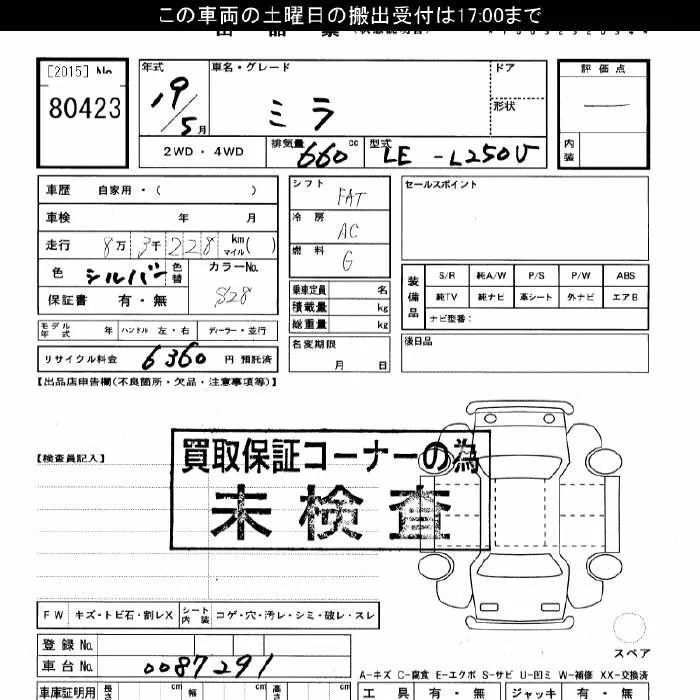 この車両の土曜日の搬出受付は17:00まで
[2015] No
80423
年式
19/5月
車名・グレード
ミラ
ドア
形状
評価点
内装
2WD・4WD
排気量 660 cc
型式 LE-L250V
車歴 自家用・( )
車検 年 月
走行 8万3千228 km マイル( )
色 シルバー 色替
カラーNo. S28
保証書 有・無
シフト FAT
冷房 AC
燃料 G
乗車定員 名
積載量 kg
総重量 kg
名変期限 月 日
セールスポイント
装備品
S/R 純A/W P/S P/W ABS
純TV 純ナビ 革シート 外ナビ エアB
ナビ型番:
後日品
モデル年式 年 ハンドル 左・右 ディーラー・並行
リサイクル料金 6360 円 預託済
【出品店申告欄(不良箇所・欠品・注意事項等)】
【検査員記入】
買取保証コーナーの為
未検査
FW キズ・トビ石・割レX シート内装 コゲ・穴・汚レ・シミ・破レ・スレ
登録No.
車台No. 0087291
スペア
A-キズ C-腐食 E-エクボ S-サビ U-凹ミ W-補修 XX-交換済
車庫証明用 長 cm 幅 cm 高さ cm
工具 有・無 ジャッキ 有・無